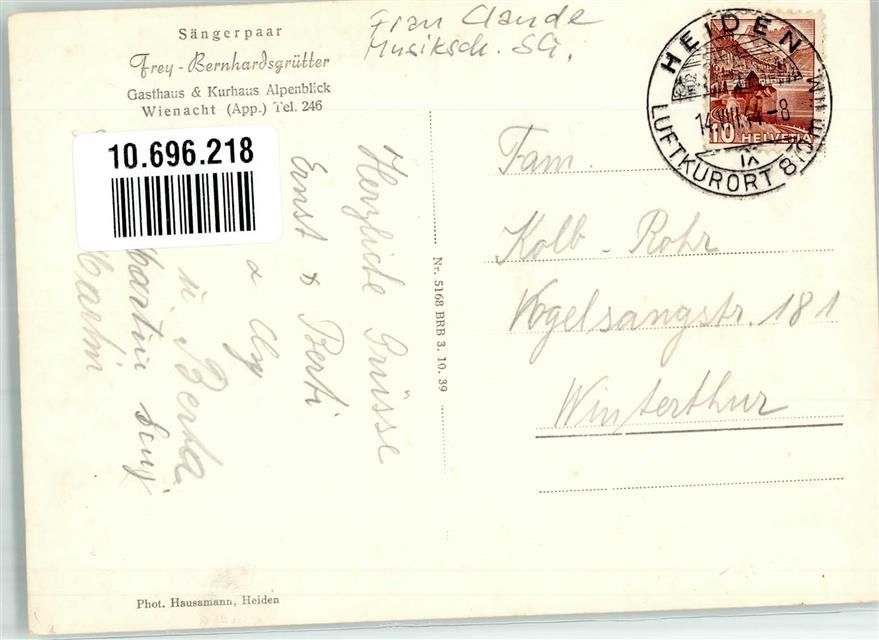 Sängerpaar
Frey-Bernhardsgrütter
Gasthaus & Kurhaus Alpenblick
Wienacht (App.) Tel. 246
Frau Claude
Musiksch. SG.
HEIDEN
LUFTKURORT
10 HELVETIA
10.696.218
Fam.
Kolb - Rohr
Vogelsangstr. 181
Winterthur
Herzliche Grüsse
Ernst & Berti
u. Berta
Martin
Nr. 5168 BRB 3. 10. 39
Phot. Hausamann, Heiden